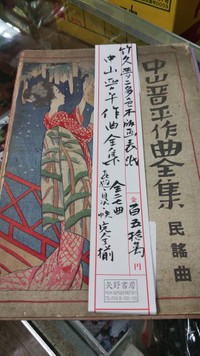 中山晋平作曲全集
民謠曲
竹久夢二多色木版画表紙
中山晋平作曲全集
全二七曲
完全揃
金
百五拾萬
円
矢野書房